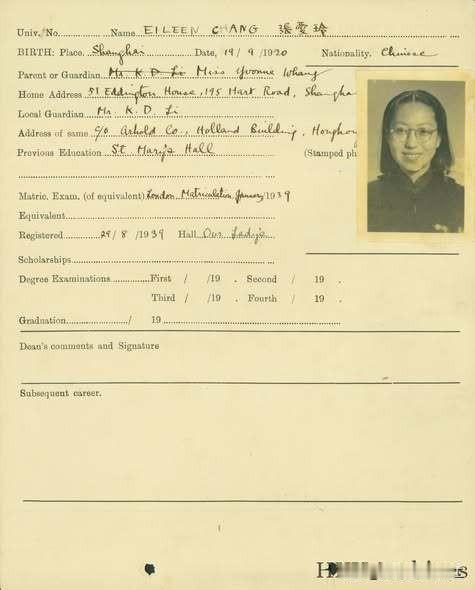 Univ. No. Name EILEEN CHANG 張愛玲
BIRTH: Place. Shanghai Date, 19/9/1920 Nationality. Chinese
Parent or Guardian Mr K D Li Miss Yvonne Whang
Home Address 51 Eddington House, 195 Hart Road, Shangha
Local Guardian Mr. K. D. Li
Address of same c/o Arhold Co., Holland Building, Hongkong
Previous Education St. Mary's Hall
(Stamped ph
Matric. Exam. (of equivalent) London Matriculation January/1939
Equivalent
Registered 29/8/1939 Hall Our Lady's
Scholarships
Degree Examinations First / /19 . Second / 19 .
Third / /19 . Fourth / 19 .
Graduation / 19
Dean's comments and Signature
Subsequent career.